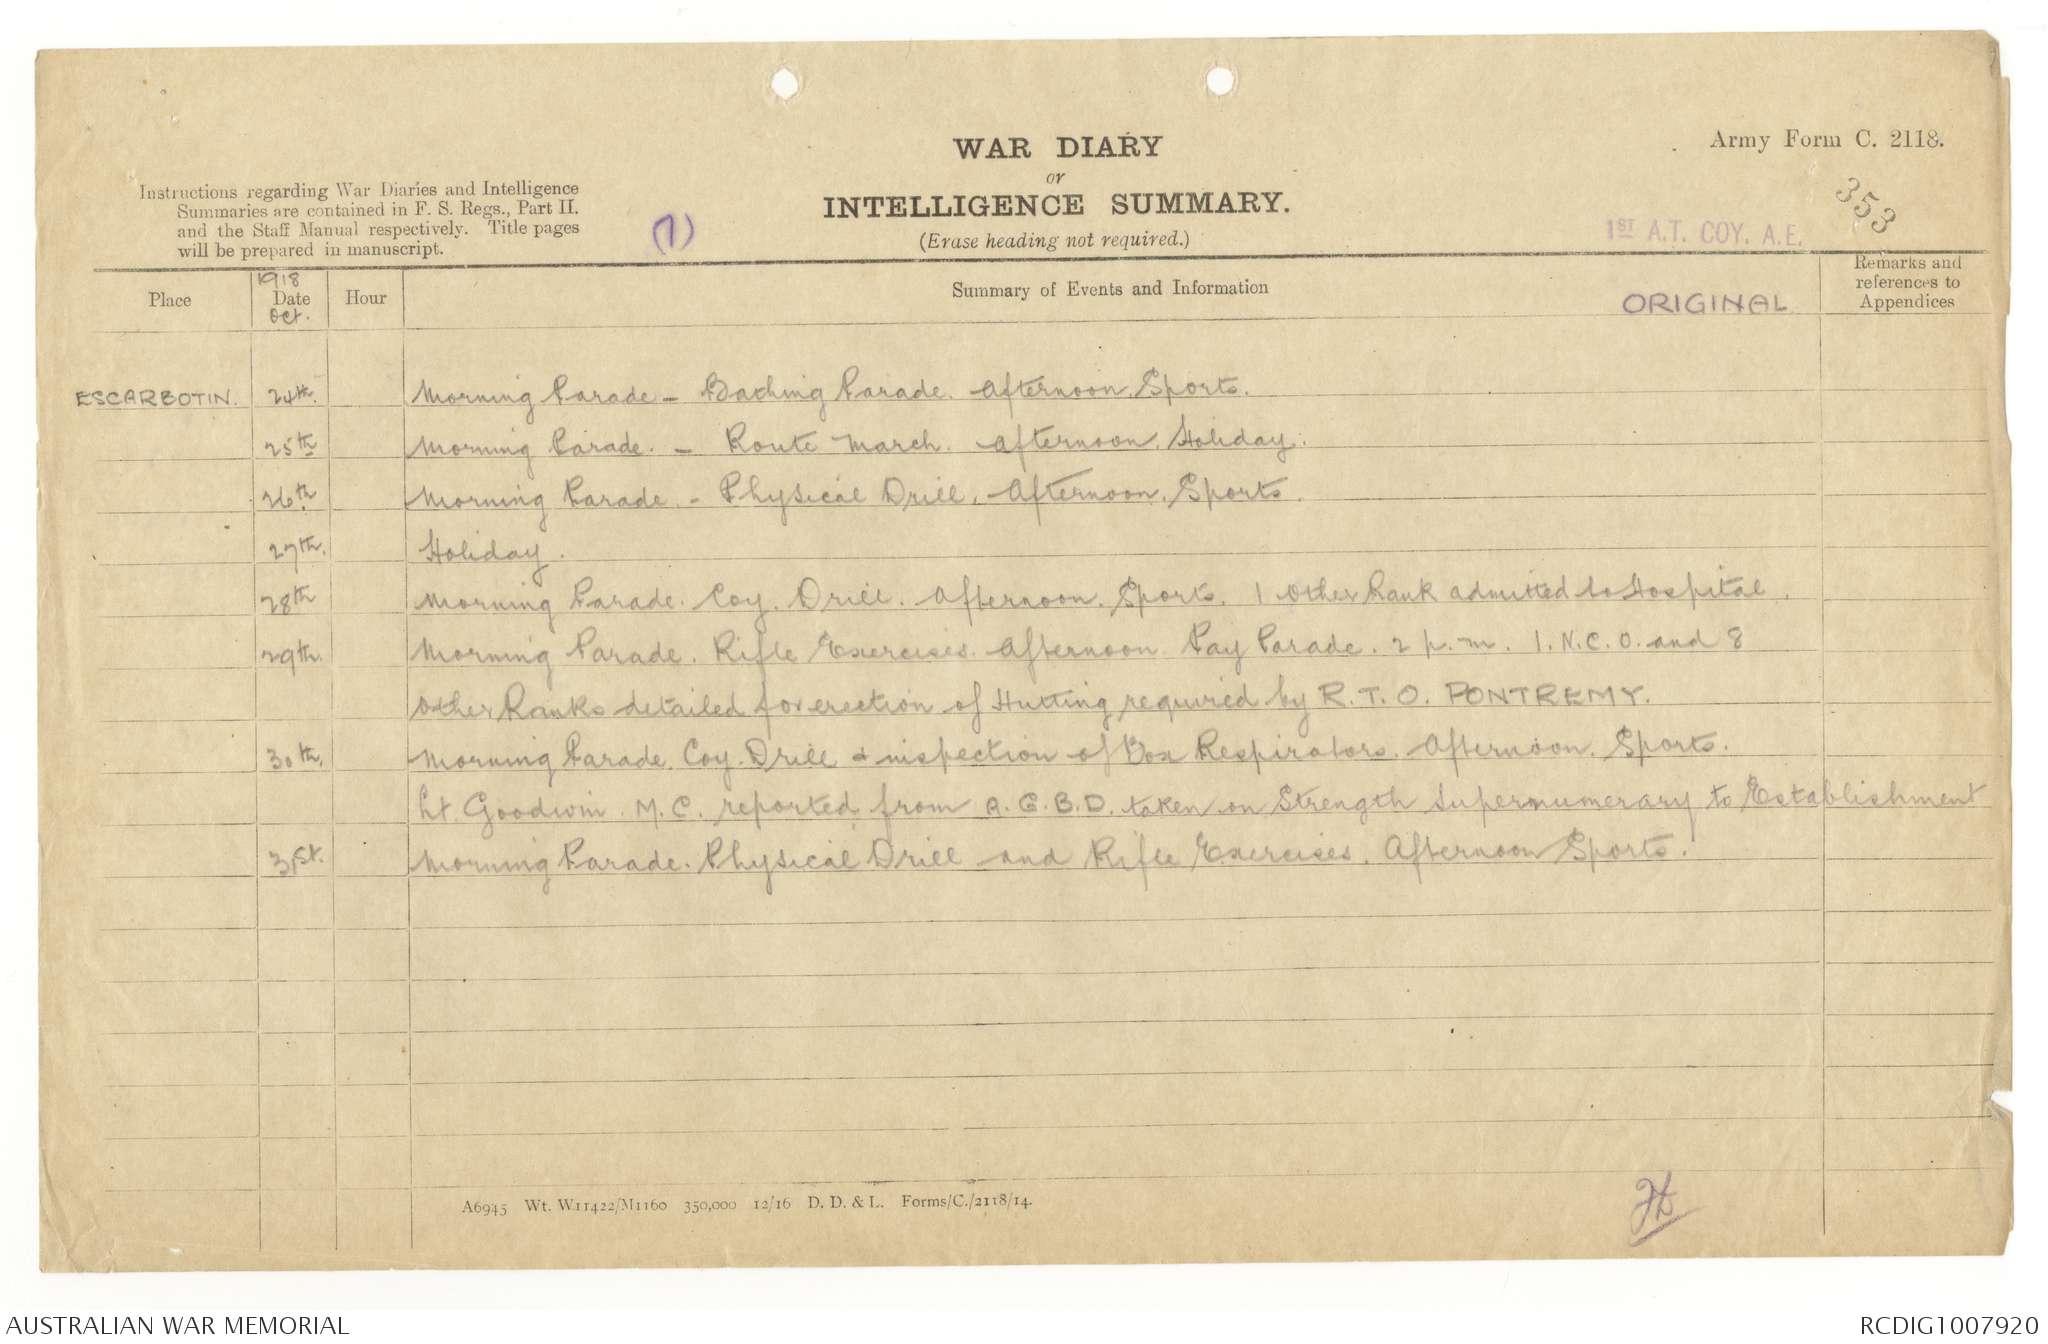 WAR DIARY
or
INTELLIGENCE SUMMARY.
(Erase heading not required.)
Army Form C. 2118.
353
Instructions regarding War Diaries and Intelligence
Summaries are contained in F. S. Regs., Part II.
and the Staff Manual respectively. Title pages
will be prepared in manuscript.
(7)
1ST A.T. COY. A.E.
Place
1918
Date
Oct.
Hour
Summary of Events and Information
ORIGINAL
Remarks and
references to
Appendices
ESCARBOTIN. 24th. Morning Parade - Bathing Parade. Afternoon. Sports.
25th Morning Parade. - Route March. Afternoon. Holiday.
26th Morning Parade. - Physical Drill. Afternoon. Sports.
27th. Holiday.
28th Morning Parade. Coy. Drill. Afternoon. Sports. 1 Other Rank admitted to Hospital.
29th. Morning Parade. Rifle Exercises. Afternoon. Pay Parade. 2 p.m. 1. N.C.O. and 8
Other Ranks detailed for erection of Hutting required by R.T.O. PONTREMY.
30th. Morning Parade. Coy. Drill & inspection of Box Respirators. Afternoon. Sports.
Lt. Goodwin. M.C. reported from A.G.B.D. taken on Strength Supernumerary to Establishment
31st. Morning Parade. Physical Drill and Rifle Exercises. Afternoon Sports.
A6945 Wt. W11422/M1160 350,000 12/16 D. D. & L. Forms/C./2118/14.
AUSTRALIAN WAR MEMORIAL
RCDIG1007920